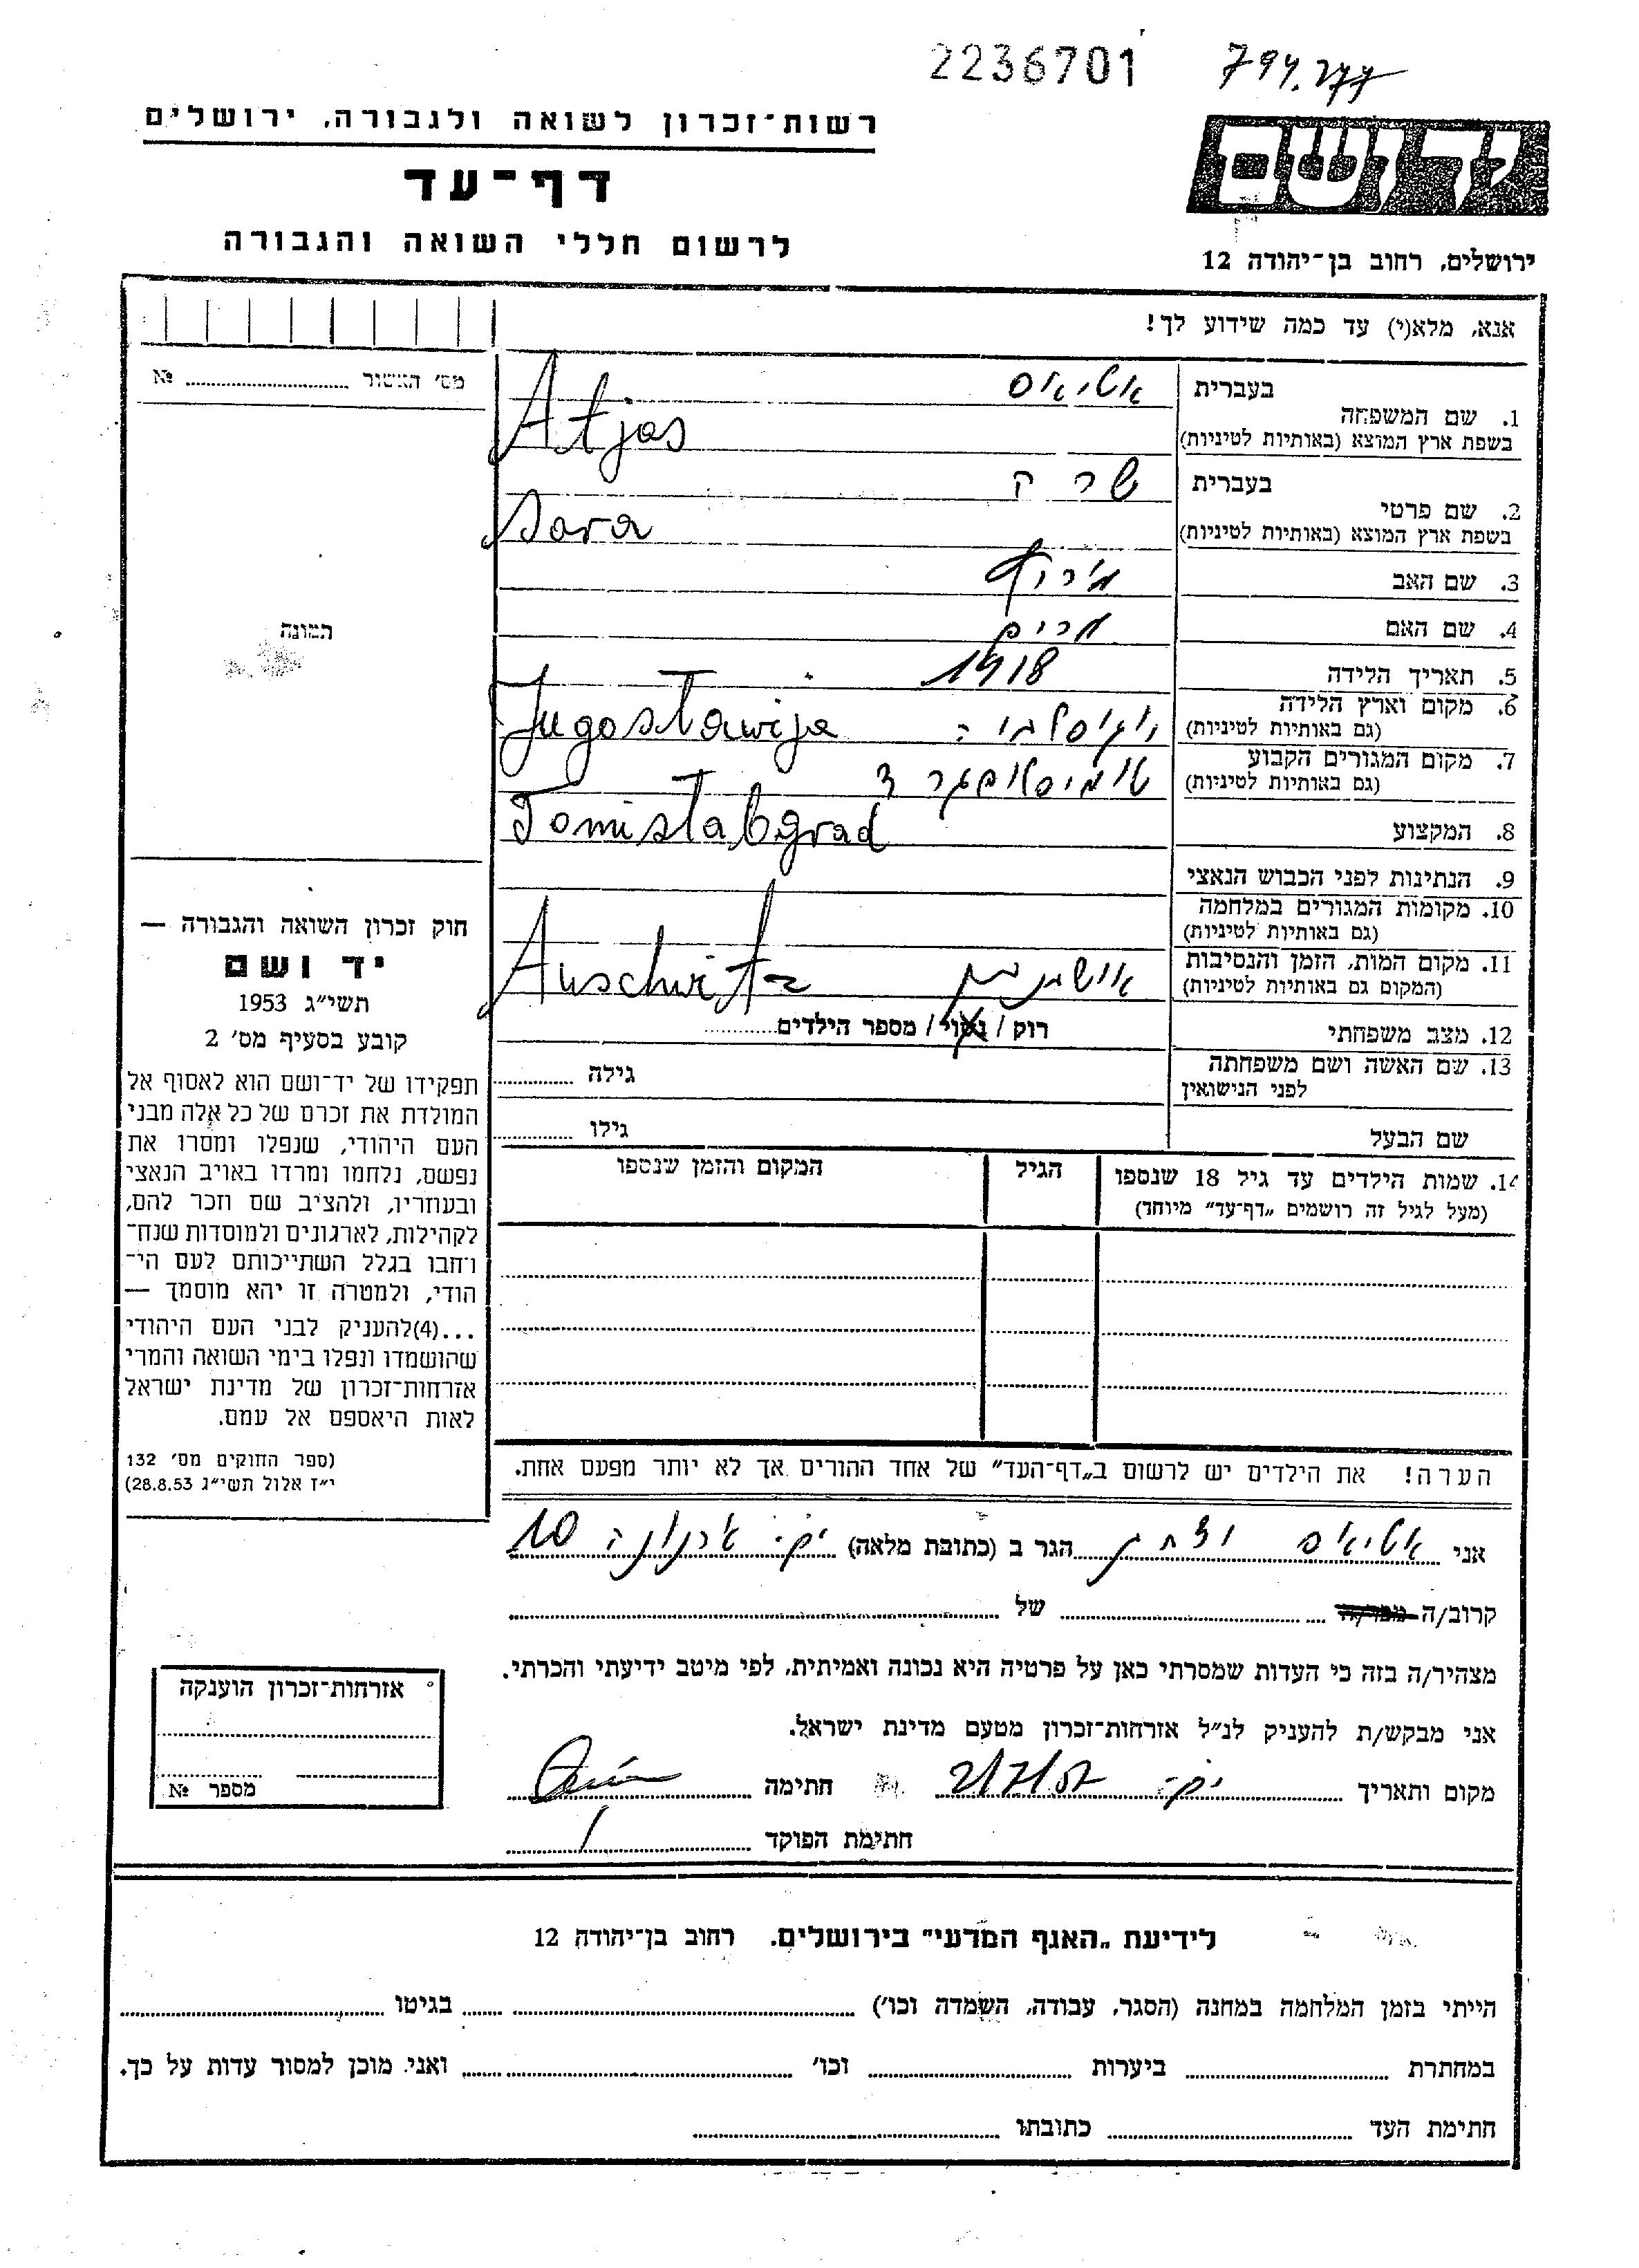 2236701
794.277
רשות־זכרון לשואה ולגבורה, ירושלים
דף־עד
לרשום חללי השואה והגבורה
יד ושם
ירושלים, רחוב בן־יהודה 12
אנא, מלא(י) עד כמה שידוע לך!
מס' הגשור № ........
1. שם המשפחה
בעברית אטיאס
בשפת ארץ המוצא (באותיות לטיניות) Atjas
2. שם פרטי
בעברית שרה
בשפת ארץ המוצא (באותיות לטיניות) Sara
3. שם האב
4. שם האם מרים
5. תאריך הלידה 1918
6. מקום וארץ הלידה
(גם באותיות לטיניות) יוגוסלביה Jugoslawija
7. מקום המגורים הקבוע
(גם באותיות לטיניות) טומיסלבגרד
Tomislabgrad
8. המקצוע
9. הנתינות לפני הכבוש הנאצי
10. מקומות המגורים במלחמה
(גם באותיות לטיניות)
11. מקום המות, הזמן והנסיבות
(המקום גם באותיות לטיניות) אושויץ Auschwitz
12. מצב משפחתי רוק / נשוי / מספר הילדים ........
13. שם האשה ושם משפחתה
לפני הנישואין גילה ........
שם הבעל גילו ........
14. שמות הילדים עד גיל 18 שנספו
(מעל לגיל זה רושמים „דף־עד” מיוחד)
הגיל
המקום והזמן שנספו
הערה! את הילדים יש לרשום ב„דף־העד” של אחד ההורים אך לא יותר מפעם אחת.
תמונה
חוק זכרון השואה והגבורה —
יד ושם
תשי״ג 1953
קובע בסעיף מס׳ 2
תפקידו של יד־ושם הוא לאסוף אל
המולדת את זכרם של כל אלה מבני
העם היהודי, שנפלו ומסרו את
נפשם, נלחמו ומרדו באויב הנאצי
ובעוזריו, ולהציב שם וזכר להם,
לקהילות, לארגונים ולמוסדות שנח־
רבו בגלל השתייכותם לעם הי־
הודי, ולמטרה זו יהא מוסמך —
...(4)להעניק לבני העם היהודי
שהושמדו ונפלו בימי השואה והמרי
אזרחות־זכרון של מדינת ישראל
לאות היאספם אל עמם.
(ספר החוקים מס׳ 132
י״ז אלול תשי״ג 28.8.53)
אני אטיאס יצחק הגר ב (כתובת מלאה) ארנונה 10
קרוב/ה מכר/ה ........ של ........
מצהיר/ה בזה כי העדות שמסרתי כאן על פרטיה היא נכונה ואמיתית, לפי מיטב ידיעתי והכרתי.
אני מבקש/ת להעניק לנ״ל אזרחות־זכרון מטעם מדינת ישראל.
מקום ותאריך ........ חתימה
חתימת הפוקד ........
אזרחות־זכרון הוענקה
מספר №
לידיעת „האגף המדעי” בירושלים, רחוב בן־יהודה 12
הייתי בזמן המלחמה במחנה (הסגר, עבודה, השמדה וכו׳) ........ בגיטו ........
במחתרת ........ ביערות ........ וכו׳ ........ ואני מוכן למסור עדות על כך.
חתימת העד ........ כתובתו ........